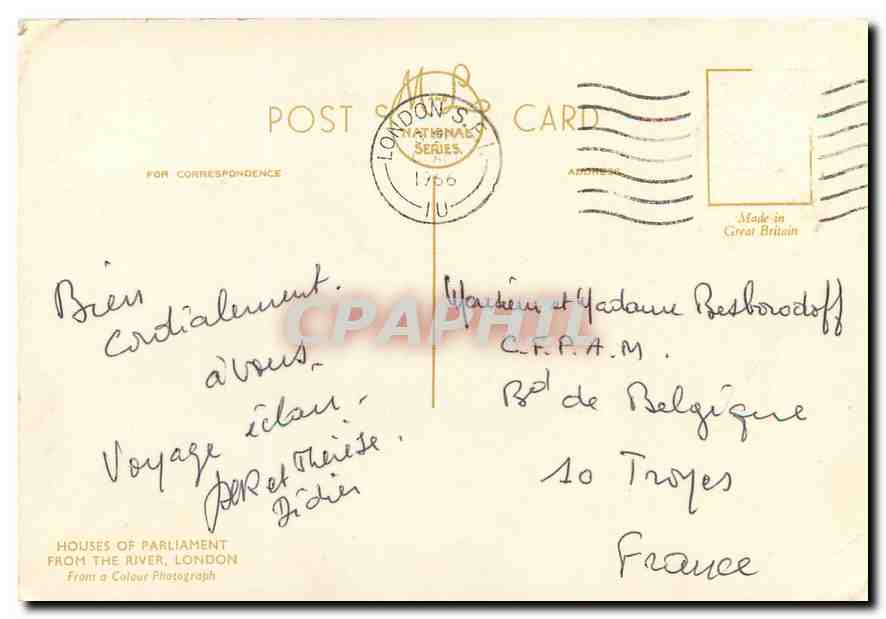 M-L
POST CARD
NATIONAL
SERIES.
LONDON S.E.1
1966
FOR CORRESPONDENCE
ADDRESS
Made in
Great Britain
Bien
cordialement.
à vous.
Voyage éclair.
et Thérèse.
Didier
Monsieur et Madame Besborodoff
C.F.P.A.M.
Bd de Belgique
10 Troyes
France
HOUSES OF PARLIAMENT
FROM THE RIVER, LONDON
From a Colour Photograph
CPAPHIL